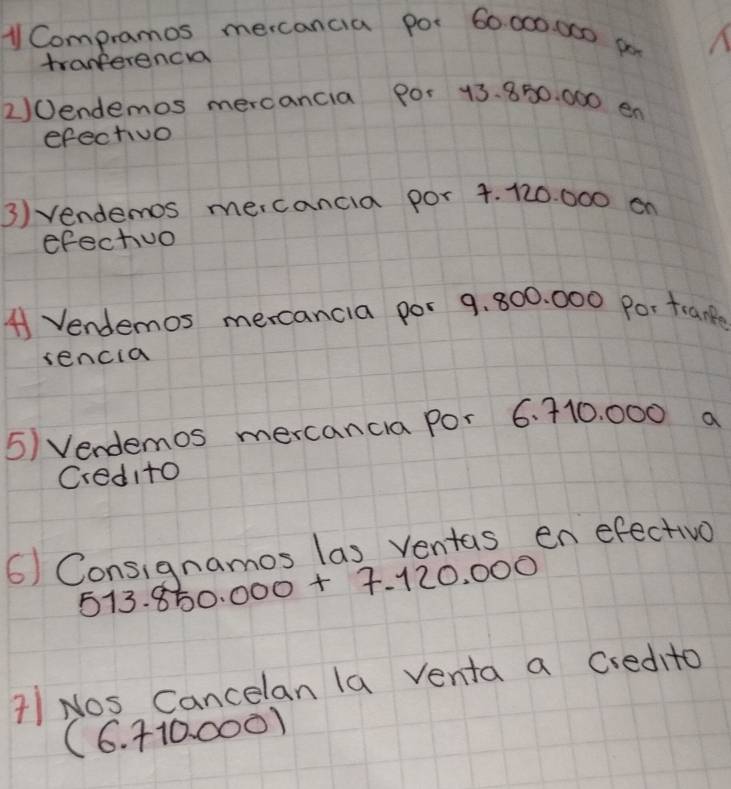 1) Compramos mercancia por 60.000.000 por
tranferencia
2) Vendemos mercancia por 13.850.000 en
efectivo
3) vendemos mercancia por 7.120.000 en
efectivo
4) Vendemos mercancia por 9.800.000 por tranfe
rencia
5) Vendemos mercancia por 6.710.000 a
Credito
6) Consignamos las ventas en efectivo
513.850.000 + 7.120.000
7) Nos Cancelan la venta a credito
(6.710.000)